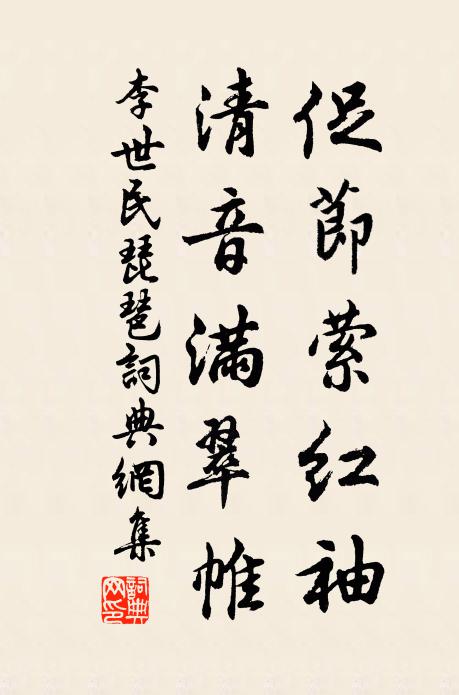 促節萦紅袖
清音滿翠帷
李世民琵琶詞典網集
詞典网印